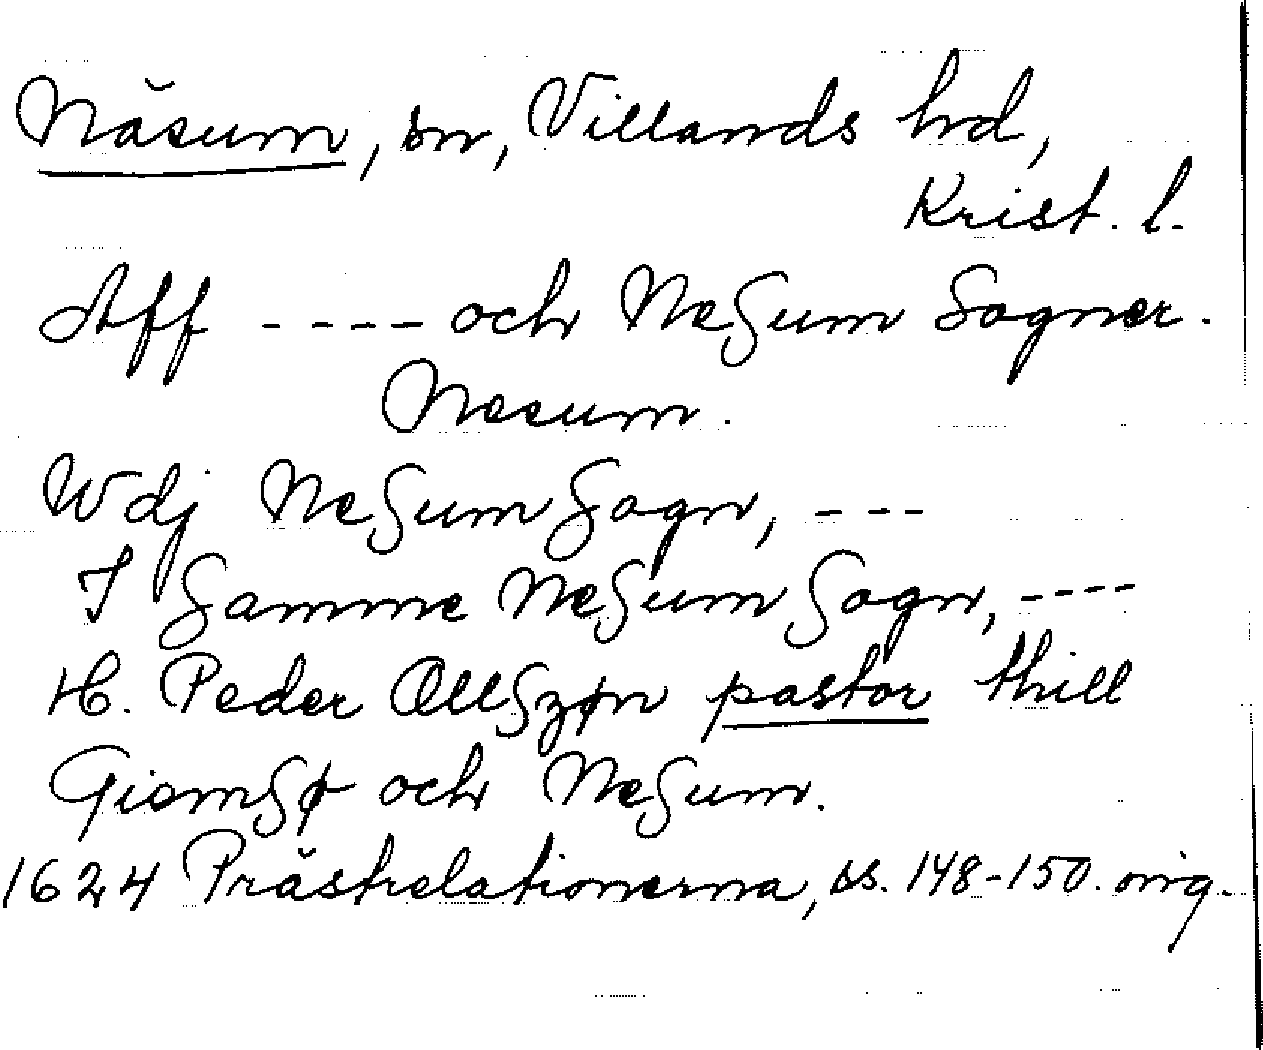 Näsum, sn, Villands hd,
Krist. l.
Aff ---- och Neſum Sogner.
Nesum.
Wdj Neſum ſogn, ---
I ſamme Neſum ſogn, ----
H. Peder Ollſzøn pastor thill
Giemſø och Neſum.
1624 Prästrelationerna, ss. 148-150. orig.